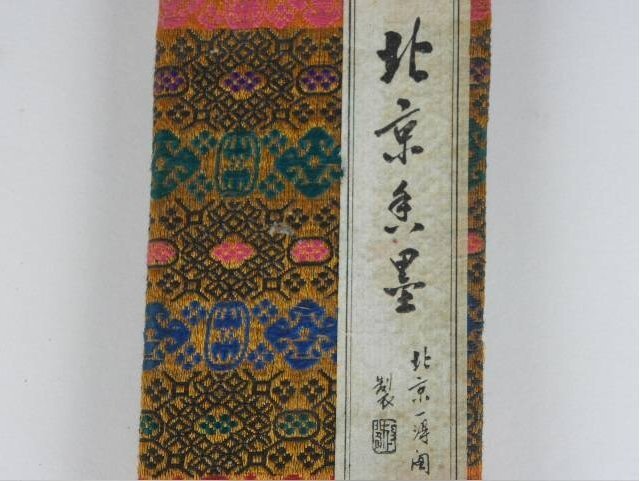 北京香墨
北京一得阁
製